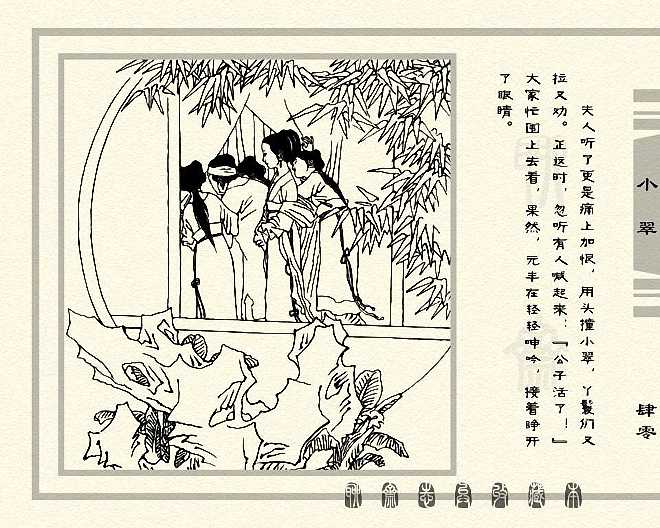 夫人听了更是痛上加恨，用头撞小翠，丫鬟们又
拉又劝。正这时，忽听有人喊起来：『公子活了！』
大家忙围上去看，果然，元丰在轻轻呻吟，接着睁开
了眼睛。
小翠
肆零
聊斋志异收藏本